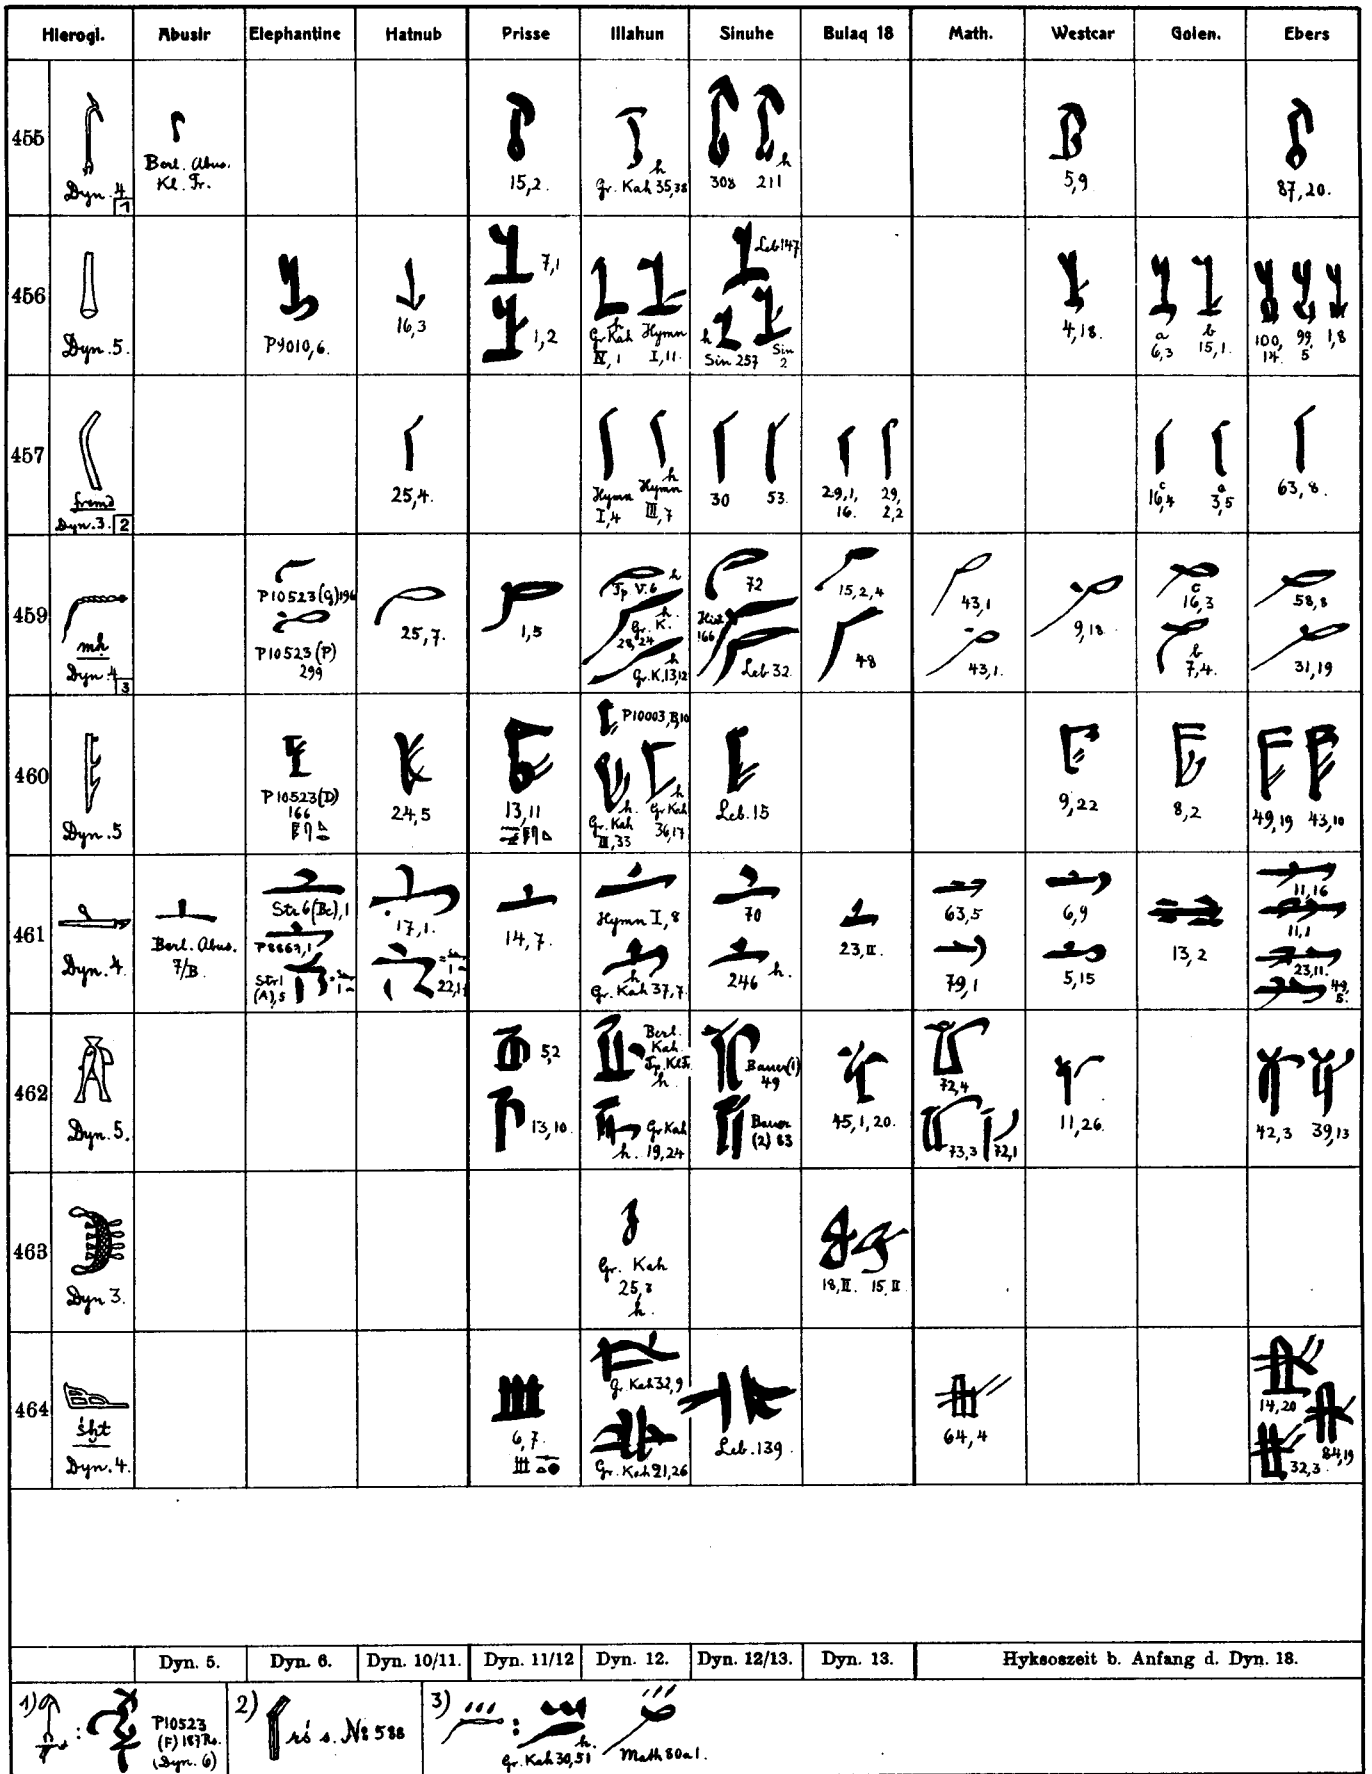 Hierogl. Abusir Elephantine Hatnub Prisse Illahun Sinuhe Bulaq 18 Math. Westcar Golen. Ebers
455
Dyn. 4
1
Berl. Abus.
Kl. Fr.
15,2.
h
Gr. Kah 35,38
308 211 h
5,9
87,20.
456
Dyn. 5.
P9010,6.
16,3
7,1
1,2
h
Gr. Kah Hymn
IV,1 I,11.
Leb 147
h
Sin 257 Sin
2
4,18.
a b
6,3 15,1.
100, 99, 1,8
14. 5
457
fremd
Dyn. 3. 2
25,4.
Hymn Hymn h
I,4 III,7
30 53.
29,1, 29,
16. 2,2
c a
16,4 3,5
63,8.
459
mḥ
Dyn. 4
3
P10523(G)196
P10523(P)
299
25,7.
1,5
Tp V.6 h
Gr. K. h.
28,24
h
Gr. K.13,12
72
Hirt
166
Leb 32.
15,2,4
48
43,1
43,1.
9,18.
c
16,3
b
7,4.
58,8
31,19
460
Dyn. 5
P10523(D)
166
24,5
13,11
P10003,B,10
h. h
Gr. Kah Gr Kah
III,33 36,17
Leb. 15
9,22
8,2
49,19 43,10
461
Dyn. 4.
Berl. Abus.
7/B.
Str 6(Bc),1
P8869,1
Str1
(A),5
17,1.
14,7.
Hymn I,8
h
Gr. Kah 37,7.
70
246 h.
23,II.
63,5
79,1
6,9
5,15
13,2
11,16
11,1
23,11.
49,
5.
462
Dyn. 5.
5,2
13,10.
Berl.
Kah.
Tp. Kl.Fr.
h.
Gr Kah
h. 19,24
Bauer(1)
49
Bauer
(2) 83
45,1,20.
72,4
73,3 72,1
11,26.
42,3 39,13
463
Dyn 3.
Gr. Kah
25,3
h.
18,II. 15,II
464
śḫt
Dyn. 4.
6,7.
Gr. Kah 32,9
Gr. Kah 21,26
Leb. 139
64,4
14,20
84,19
32,3
Dyn. 5. Dyn. 6. Dyn. 10/11. Dyn. 11/12 Dyn. 12. Dyn. 12/13. Dyn. 13. Hyksoszeit b. Anfang d. Dyn. 18.
1) : P10523
(F) 187Ro.
(Dyn. 6)
2) rś s. No 588
3) :
h.
Gr. Kah 30,51 Math 80a1.